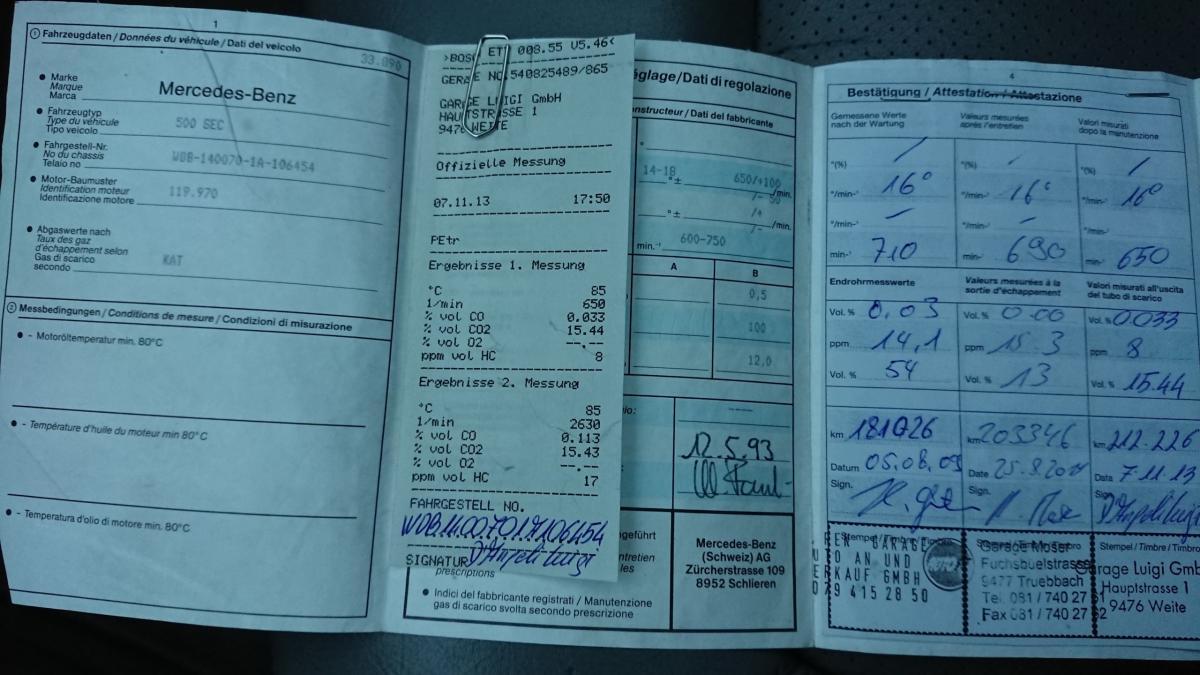 1
① Fahrzeugdaten / Données du véhicule / Dati del veicolo
33.090
Marke
Marque
Marca
Mercedes-Benz
Fahrzeugtyp
Type du véhicule
Tipo veicolo
500 SEC
Fahrgestell-Nr.
No du chassis
Telaio no
WDB-140070-1A-106454
Motor-Baumuster
Identification moteur
Identificazione motore
119.970
Abgaswerte nach
Taux des gaz
d'échappement selon
Gas di scarico
secondo
KAT
② Messbedingungen / Conditions de mesure / Condizioni di misurazione
- Motoröltemperatur min. 80°C
- Température d'huile du moteur min 80°C
- Temperatura d'olio di motore min. 80°C
ETT 008.55 V5.46
GERÄ E NO 540825489/865
GARAGE LUIGI GmbH
HAUPTSTRASSE 1
9476 WEITE
Offizielle Messung
07.11.13 17:50
PEtr
Ergebnisse 1. Messung
°C 85
1/min 650
% vol CO 0.033
% vol CO2 15.44
% vol O2 --.--
ppm vol HC 8
Ergebnisse 2. Messung
°C 85
1/min 2630
% vol CO 0.113
% vol CO2 15.43
% vol O2 --.--
ppm vol HC 17
FAHRGESTELL NO.
SIGNATUR
prescriptions
Indici del fabbricante registrati / Manutenzione
gas di scarico svolta secondo prescrizione
églage / Dati di regolazione
onstructeur / Dati del fabbricante
14-18 °± 650/+100 /min.
°± /min.
min.⁻¹ 600-750
A B
0,5
100
12,0
12.5.93
ngeführt
ntretien
les
Mercedes-Benz
(Schweiz) AG
Zürcherstrasse 109
8952 Schlieren
4
Bestätigung / Attestation / Attestazione
Gemessene Werte
nach der Wartung
Valeurs mesurées
après l'entretien
Valori misurati
dopo la manutenzione
°(%) / °(%) / °(%) /
°/min-¹ 16° °/min-¹ 16° °/min-¹ 16°
°/min-¹ °/min-¹ °/min-¹
min-¹ 710 min-¹ 690 min-¹ 650
Endrohrmesswerte
Valeurs mesurées à la
sortie d'échappement
Valori misurati all'uscita
del tubo di scarico
Vol. % 0.03 Vol. % 0.00 Vol. % 0.033
ppm 14,1 ppm 15.3 ppm 8
Vol. % 54 Vol. % 13 Vol. % 15.44
km 181026 km 203346 km 212.226
Datum 05.08.09 Date 25.8.2011 Data 7.11.13
Sign. Sign. Sign.
Stempel / Timbre / Timbro Stempel / Timbre / Timbro Stempel / Timbre / Timbro
GARAGE
AN UND
KAUF GMBH
079 415 28 50
Garage Moser
Fuchsbüelstrasse
9477 Truebbach
Tel. 081 / 740 27
Fax 081 / 740 27
Garage Luigi Gmb
Hauptstrasse 1
9476 Weite